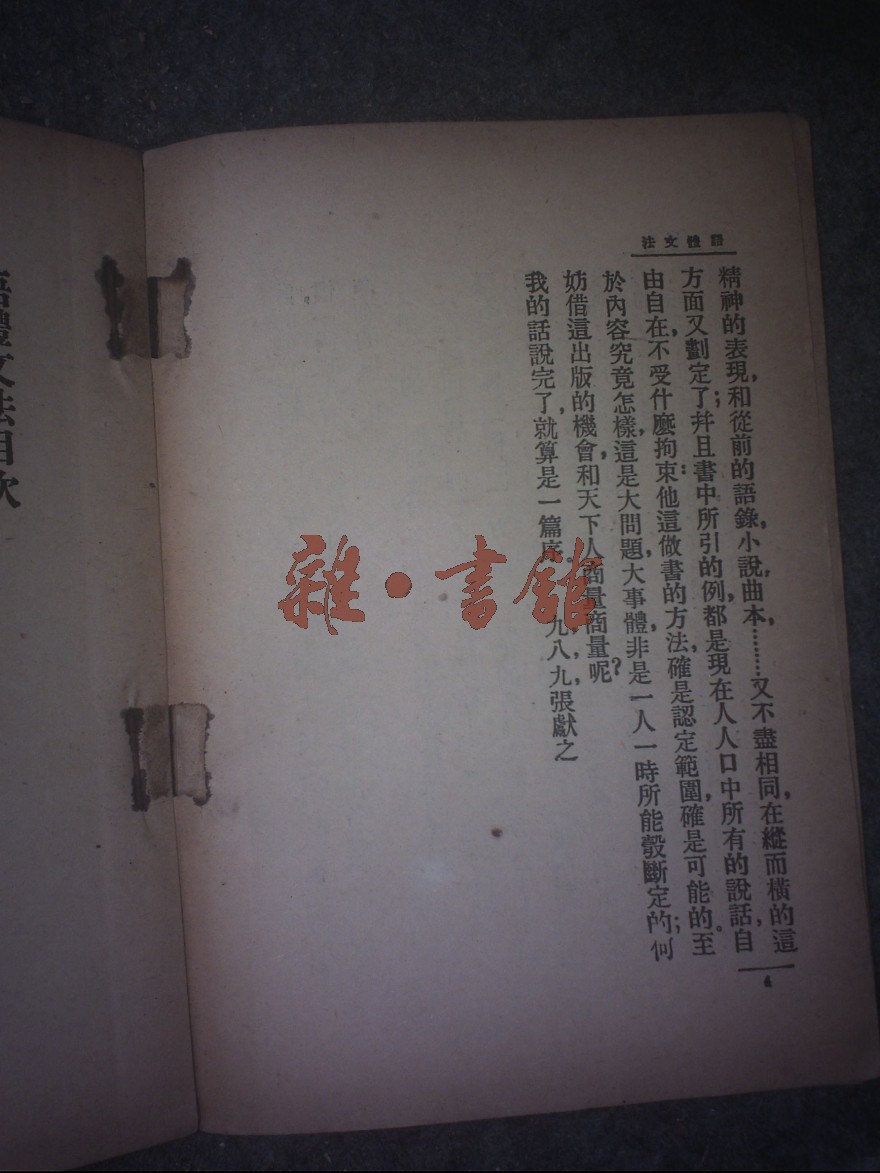 語體文法
精神的表現,和從前的語錄,小說,曲本,………又不盡相同,在縱而橫的這
方面又劃定了;幷且書中所引的例,都是現在人人口中所有的說話,自
由自在,不受什麼拘束:他這做書的方法,確是認定範圍,確是可能的。至
於內容究竟怎樣,這是大問題,大事體,非是一人一時所能彀斷定的;何
妨借這出版的機會,和天下人商量商量呢?
我的話說完了,就算是一篇序。 九,八,九,張獻之
4
語體文法目次
雜·書館